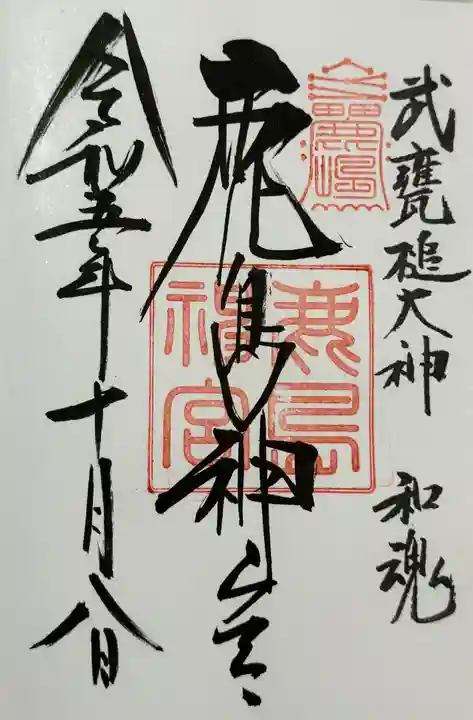 武甕槌大神 和魂
鹿嶋
鹿島神宮
鹿島神宮
令和五年十月八日